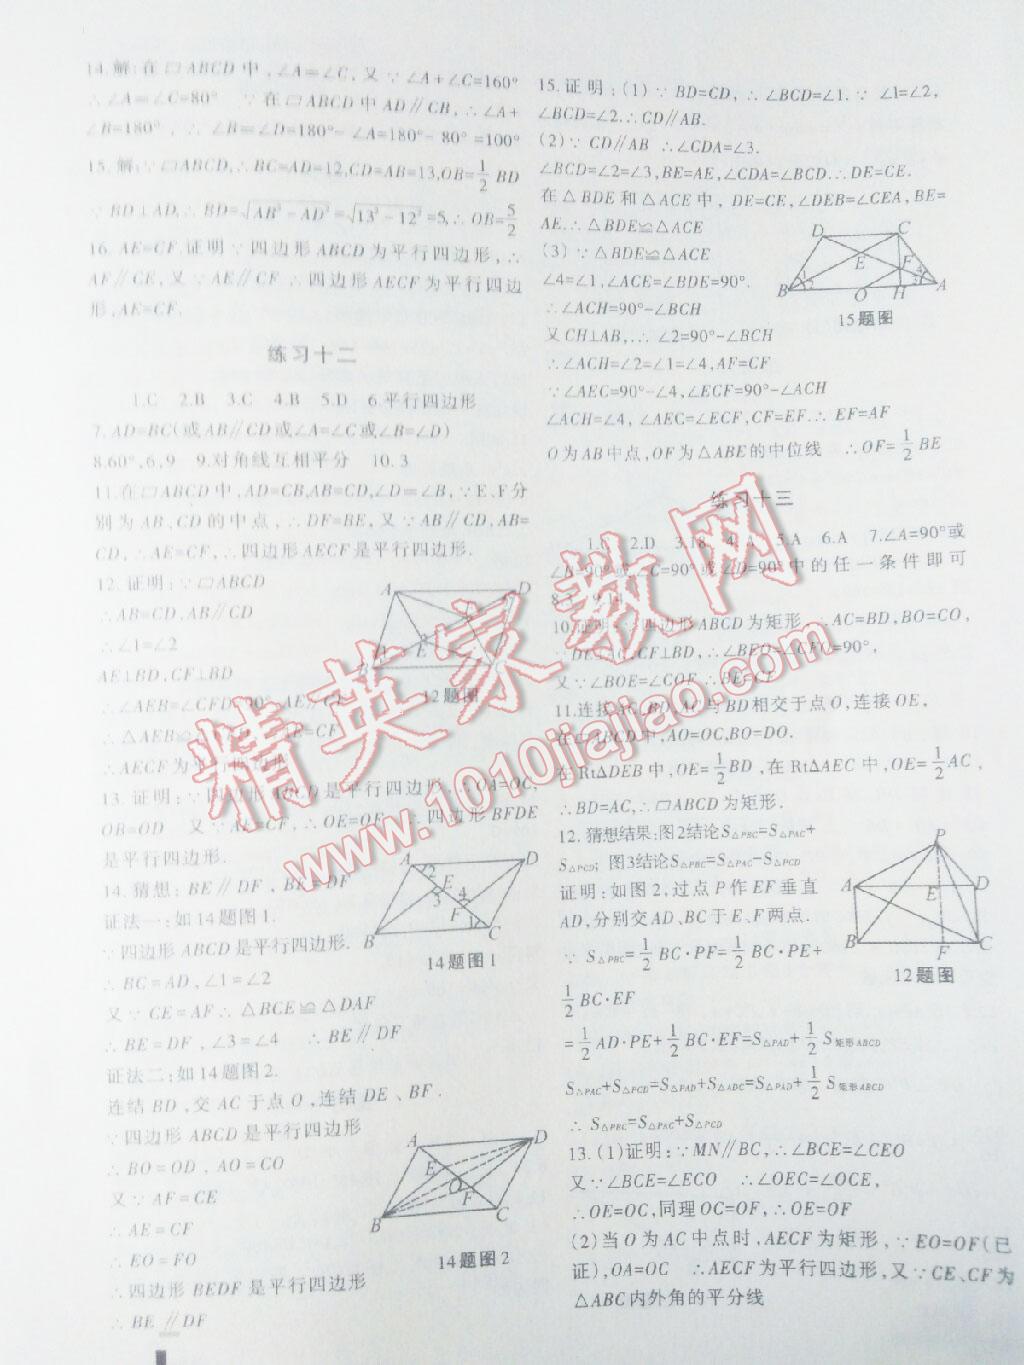 14.解:在▱ABCD中,∠A=∠C,又∵∠A+∠C=160°
∴∠A=∠C=80° ∵在▱ABCD中AD∥CB,∴∠A+
∠B=180°,∴∠B=∠D=180°-∠A=180°-80°=100°
15.解:∵▱ABCD,∴BC=AD=12,CD=AB=13,OB=1/2 BD
∵BD⊥AD,∴BD=√(AB²-AD²)=√(13²-12²)=5,∴OB=5/2
16. AE=CF.证明∵四边形ABCD为平行四边形,∴
AF∥CE,又∵AE∥CF ∴四边形AECF为平行四边
形,AE=CF.
练习十二
1.C 2.B 3.C 4.B 5.D 6.平行四边形
7.AD=BC(或AB∥CD或∠A=∠C或∠B=∠D)
8.60°,6,9 9.对角线互相平分 10.3
11.在▱ABCD中,AD=CB,AB=CD,∠D=∠B,∵E、F分
别为AB、CD的中点,∴DF=BE,又∵AB∥CD,AB=
CD,∴AE=CF,∴四边形AECF是平行四边形.
12.证明:∵▱ABCD
∴AB=CD,AB∥CD
∴∠1=∠2
AE⊥BD,CF⊥BD
∴∠AEB=∠CFD=90°,AE∥CF
∴△AEB≌ AE=CF
∴AECF为平行四边形
A D E B C
12题图
13.证明:∵四边形ABCD是平行四边形,∴OA=OC,
OB=OD 又∵AE=CF,∴OE=OF ∴四边形BFDE
是平行四边形.
14.猜想:BE∥DF,BE=DF
证法一:如14题图1.
∵四边形ABCD是平行四边形.
∴BC=AD,∠1=∠2
又∵CE=AF∴△BCE≌△DAF
∴BE=DF,∠3=∠4 ∴BE∥DF
A D 2 E 3 4 F 1 B C
14题图1
证法二:如14题图2.
连结BD,交AC于点O,连结DE、BF.
∵四边形ABCD是平行四边形
∴BO=OD,AO=CO
又∵AF=CE
∴AE=CF
∴EO=FO
∴四边形BEDF是平行四边形
∴BE∥DF
A D E O F B C
14题图2
15.证明:(1)∵BD=CD,∴∠BCD=∠1.∵∠1=∠2,
∠BCD=∠2.∴CD∥AB.
(2)∵CD∥AB ∴∠CDA=∠3.
∠BCD=∠2=∠3,BE=AE,∠CDA=∠BCD.∴DE=CE.
在△BDE和△ACE中,DE=CE,∠DEB=∠CEA,BE=
AE.∴△BDE≌△ACE
(3)∵△BDE≌△ACE
∠4=∠1,∠ACE=∠BDE=90°.
∴∠ACH=90°-∠BCH
又CH⊥AB,∴∠2=90°-∠BCH
∴∠ACH=∠2=∠1=∠4,AF=CF
∵∠AEC=90°-∠4,∠ECF=90°-∠ACH
∠ACH=∠4,∠AEC=∠ECF,CF=EF.∴EF=AF
O为AB中点,OF为△ABE的中位线 ∴OF=1/2 BE
D C E F B O H A
15题图
练习十三
2.D 3.18 4.A 5.A 6.A 7.∠A=90°或
∠B=90°或∠C=90°或∠D=90°中的任一条件即可
10.证明:∵四边形ABCD为矩形,∴AC=BD,BO=CO,
∵BE⊥AC,CF⊥BD,∴∠BEO=∠CFO=90°,
又∵∠BOE=∠COF ∴BE=CF
11.连接AC、BD,AC与BD相交于点O,连接OE.
在▱ABCD中,AO=OC,BO=DO.
在Rt△DEB中,OE=1/2 BD,在Rt△AEC中,OE=1/2 AC,
∴BD=AC,∴▱ABCD为矩形.
12.猜想结果:图2结论S△PBC=S△PAC+
S△PCD;图3结论S△PBC=S△PAC-S△PCD
证明:如图2,过点P作EF垂直
AD,分别交AD、BC于E、F两点.
∵ S△PBC=1/2 BC·PF=1/2 BC·PE+
1/2 BC·EF
=1/2 AD·PE+1/2 BC·EF=S△PAD+1/2 S矩形ABCD
S△PAC+S△PCD=S△PAD+S△ADC=S△PAD+1/2 S矩形ABCD
∴ S△PBC=S△PAC+S△PCD
P A E D B F C
12题图
13.(1)证明:∵MN∥BC,∴∠BCE=∠CEO
又∵∠BCE=∠ECO ∴∠OEC=∠OCE,
∴OE=OC,同理OC=OF,∴OE=OF
(2)当O为AC中点时,AECF为矩形,∵EO=OF(已
证),OA=OC ∴AECF为平行四边形,又∵CE、CF为
△ABC内外角的平分线
精英家教网
www.1010jiajiao.com